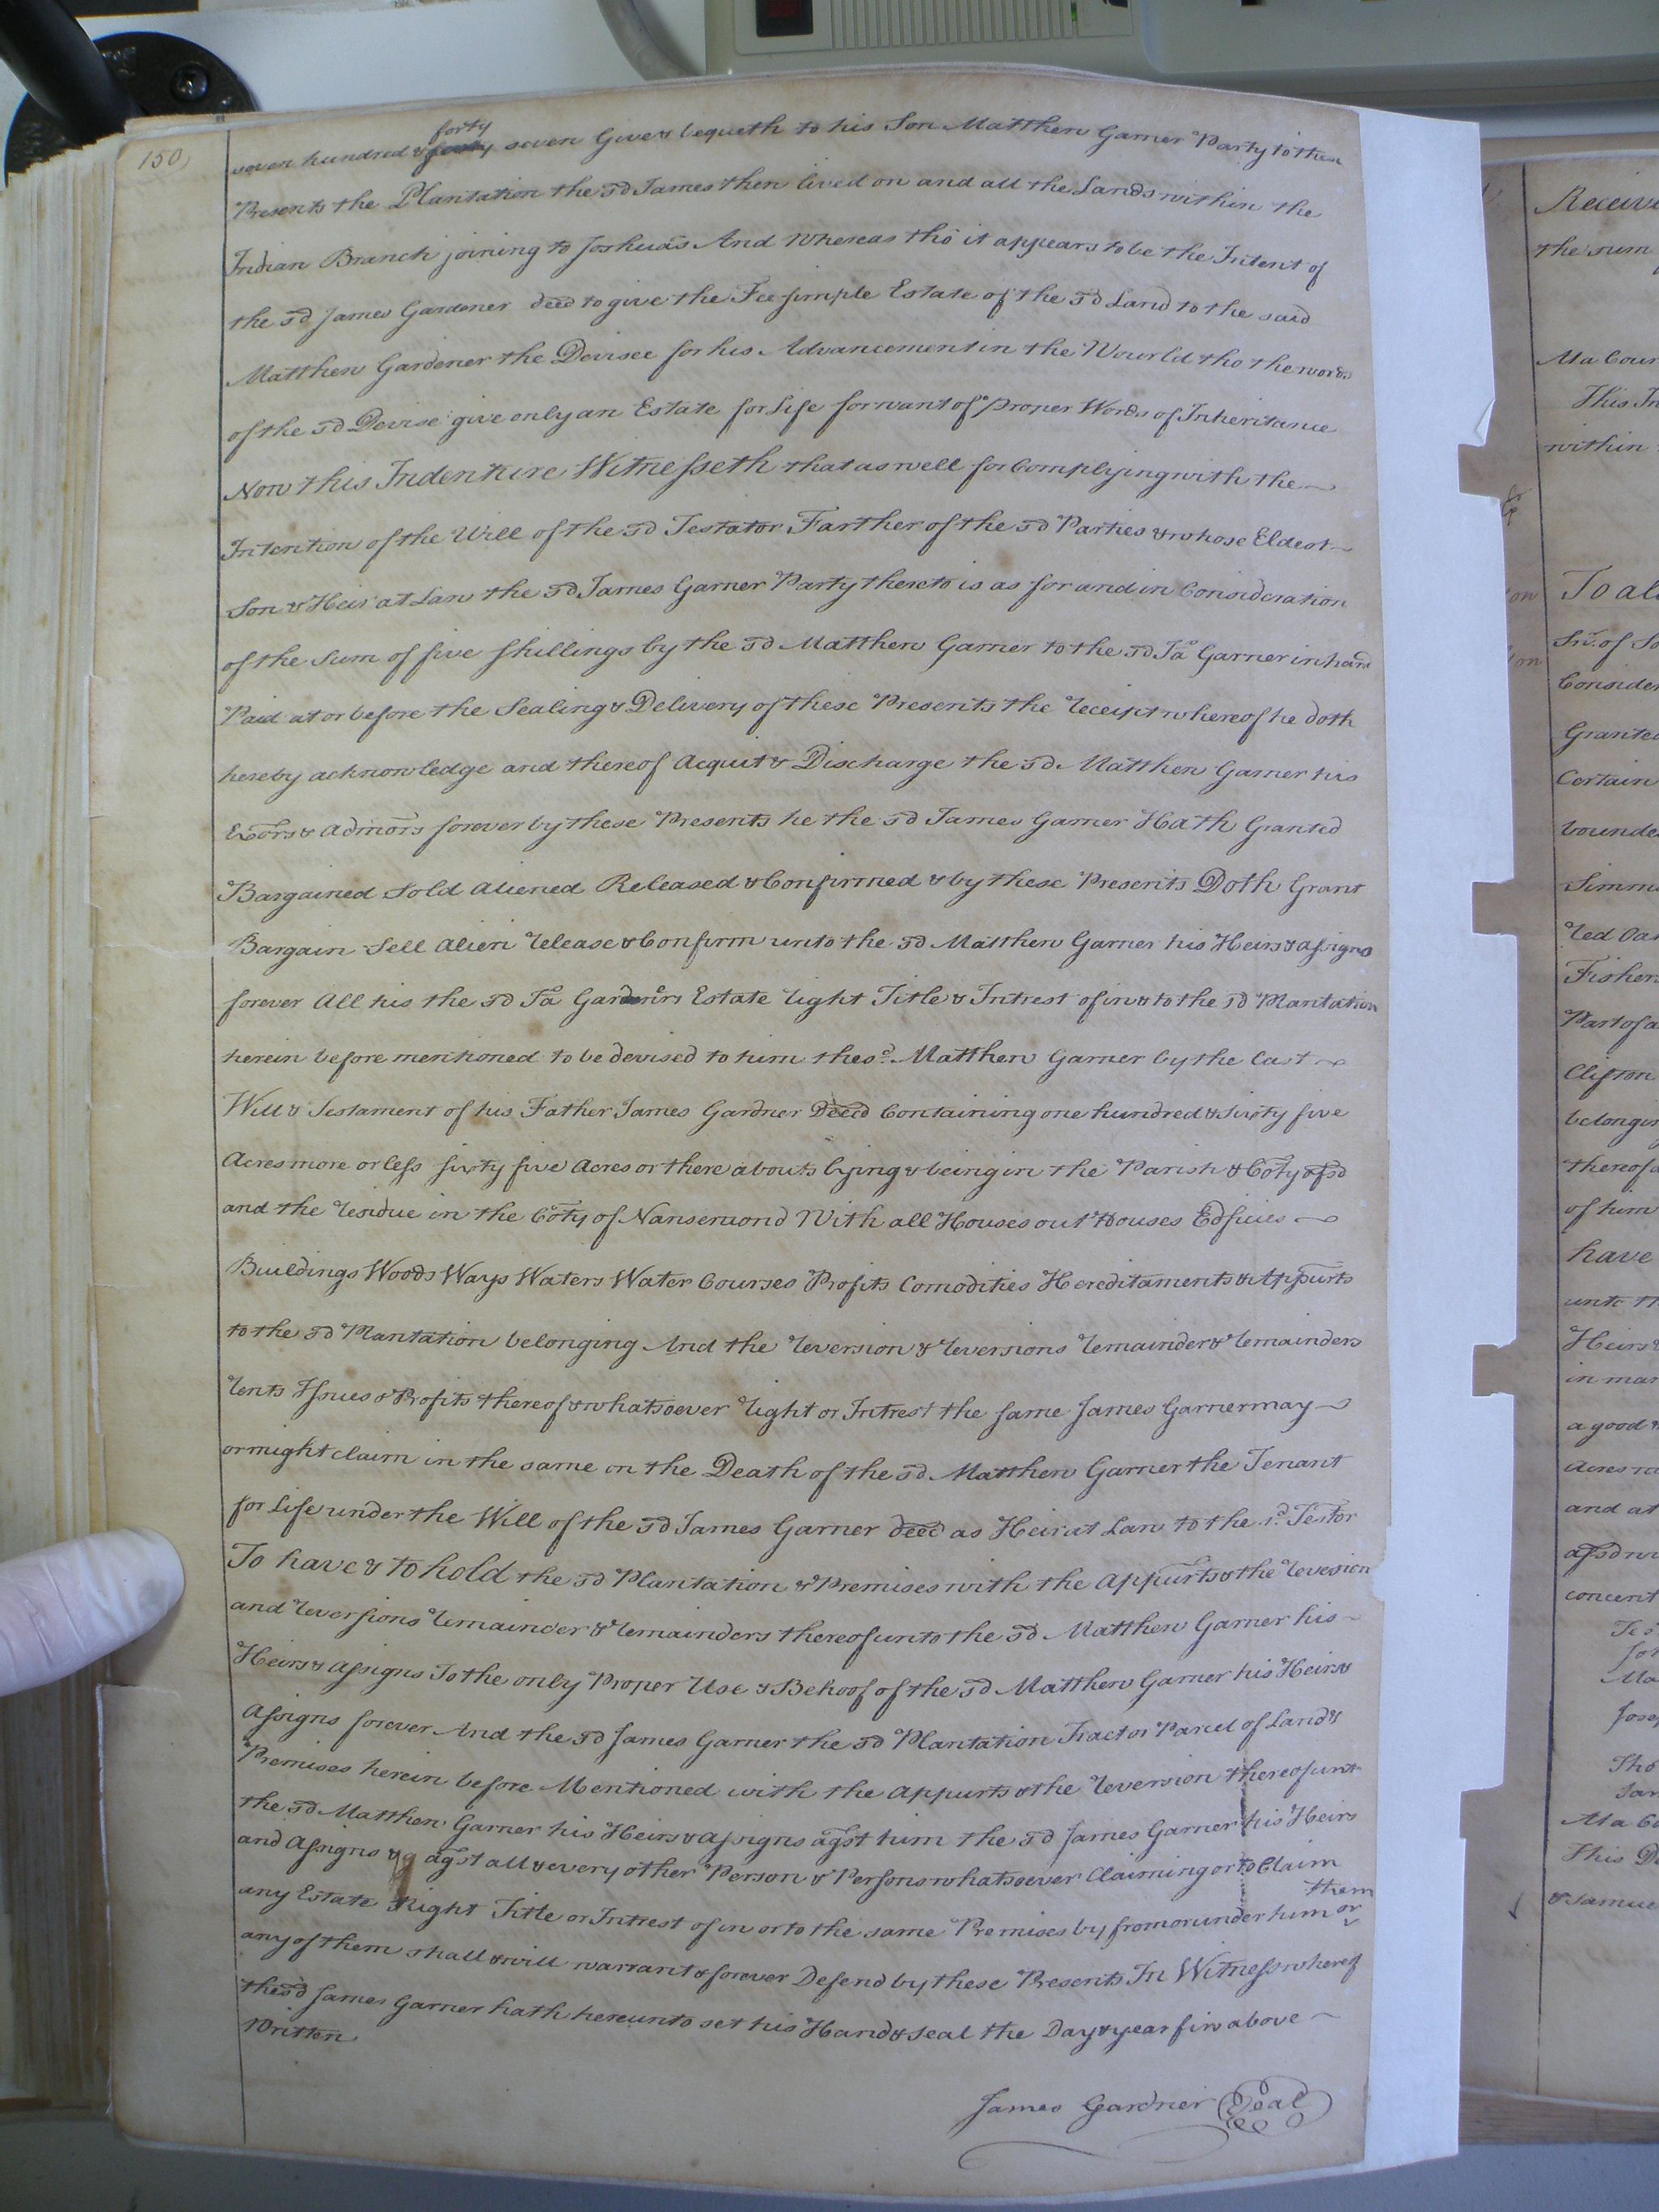 150
seven hundred & forty seven Give & bequeth to his Son Matthew Garner Party to these
Presents the Plantation the sd James then lived on and all the Lands within the
Indian Branch joining to Joshua's And Whereas tho it appears to be the Intent of
the sd James Gardener decd to give the Fee simple Estate of the sd Land to the said
Matthew Gardener the Devisee for his Advancement in the Wourld tho the words
of the sd Devise give only an Estate for Life for want of Proper Words of Inheritance
Now this Indenture Witnesseth that as well for Complying with the
Intention of the Will of the sd Testator Farther of the sd Parties & whose Eldest
Son & Heir at Law the sd James Garner Party thereto is as for and in Consideration
of the Sum of five Shillings by the sd Matthew Garner to the sd Ja Garner in hand
Paid at or before the Sealing & Delivery of these Presents the Receipt whereof he doth
hereby acknowledge and thereof Acquit & Discharge the sd Matthew Garner his
Exors & Admors forever by these Presents he the sd James Garner Hath Granted
Bargained Sold Aliened Released & Confirmed & by these Presents Doth Grant
Bargain Sell Alien Release & Confirm unto the sd Matthew Garner his Heirs & assigns
forever All his the sd Ja Gardners Estate Right Title & Intrest of in & to the sd Plantation
herein before mentioned to be devised to him the sd Matthew Garner by the Last
Will & Testament of his Father James Gardner Decd Containing one hundred & Sixty five
Acres more or less sixty five Acres or there abouts lying & being in the Parish & Coty afsd
and the Residue in the Coty of Nansemond With all Houses out Houses Edfices
Buildings Woods Ways Waters Water Courses Profits Comodities Hereditaments & Appurts
to the sd Plantation belonging And the Reversion & Reversions Remainder & Remainders
Rents Issues & Profits thereof & whatsoever Right or Intrest the same James Garner may
or might claim in the same on the Death of the sd Matthew Garner the Tenant
for Life under the Will of the sd James Garner decd as Heir at Law to the sd Testor
To have & to hold the sd Plantation & Premises with the Appurts & the Revesion
and Reversions Remainder & Remainders thereof unto the sd Matthew Garner his
Heirs & Assigns To the only Proper Use & Behoof of the sd Matthew Garner his Heirs &
Assigns forever And the sd James Garner the sd Plantation Tract or Parcel of Land &
Premises herein before Mentioned with the Appurts & the Reversion thereof unt
the sd Matthew Garner his Heirs & Assigns agst him the sd James Garner his Heirs
and Assigns & agst all & every other Person & Persons whatsoever Claiming or to Claim
any Estate Right Title or Intrest of in or to the same Premises by from or under him them or
any of them shall & will warrant & forever Defend by these Presents In Witness whereof
the sd James Garner hath hereunto set his Hand & Seal the Day & year firs above
Written
James Gardner Seal
the sum
This In
within
To al
Granted
Certain
Part of a
Clifton
thereof
of him
have
Heirs
in man
a good
and at
concent